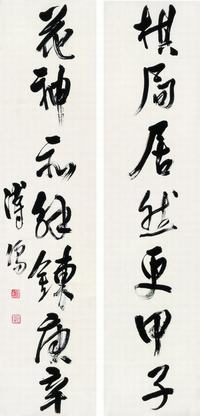 棋局居然更甲子
花神不解鍊庚辛
溥儒